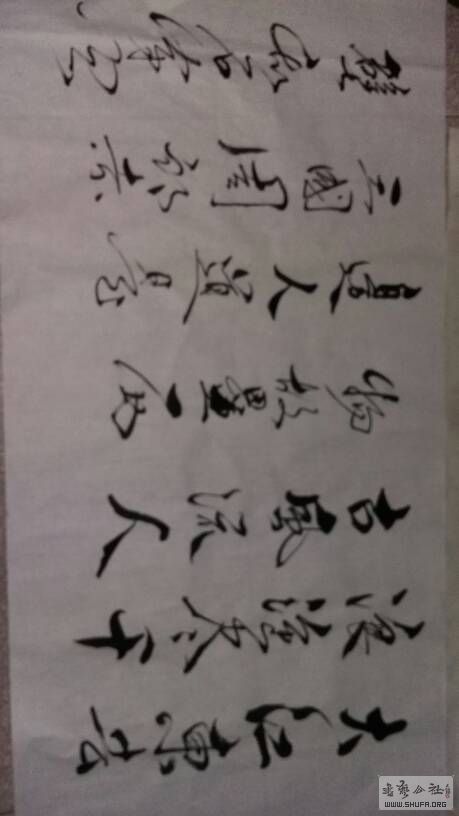 大江東去
浪淘尽千
古風流人
物故壘西
邊人道是
三國周郎赤
壁乱石穿空
書藝公社
WWW.SHUFA.ORG